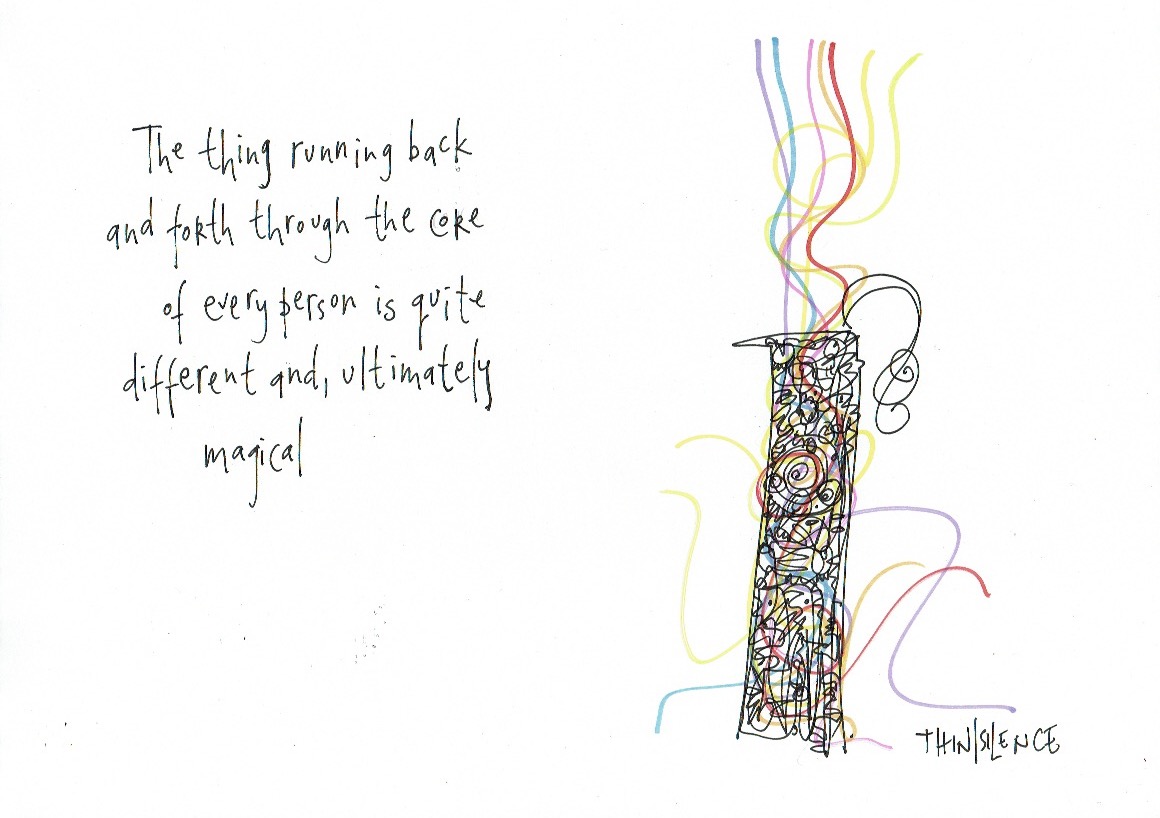 The thing running back
and forth through the core
of every person is quite
different and, ultimately
magical
THIN|SILENCE